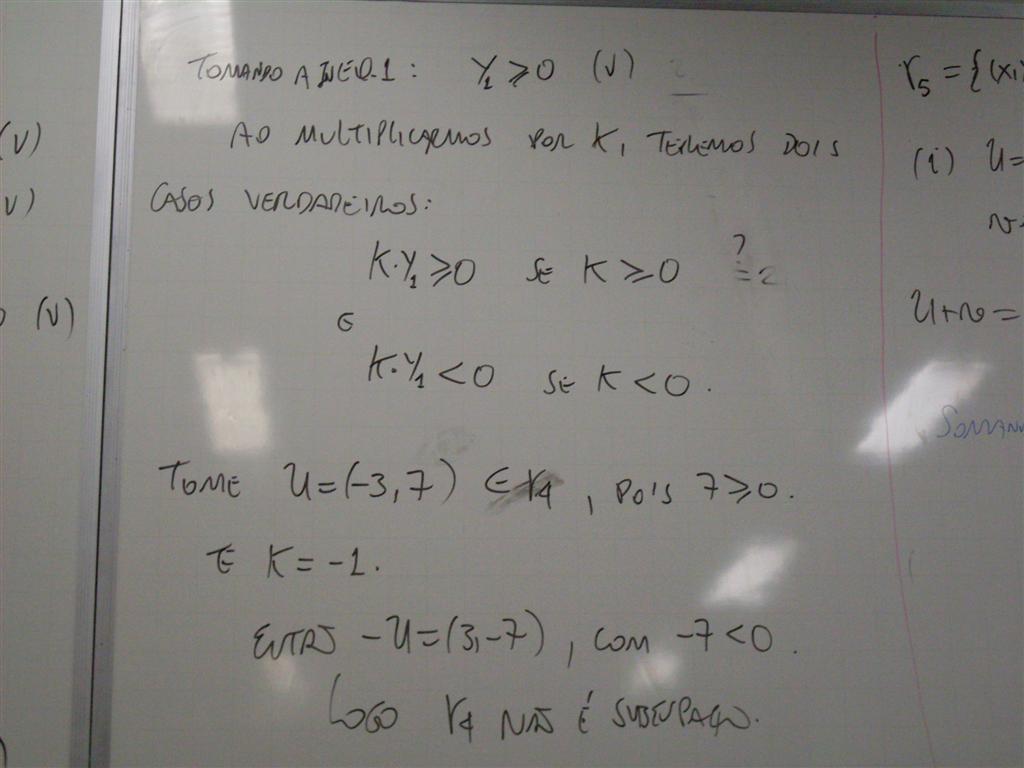 TOMANDO A INEQ.1: Y₁ ⩾ 0 (V)
AO MULTIPLICARMOS POR K, TEREMOS DOIS
CASOS VERDADEIROS:
K·Y₁ ⩾ 0 SE K ⩾ 0 ?
E
K·Y₁ < 0 SE K < 0.
TOME U = (-3, 7) ∈ r₄, POIS 7 ⩾ 0.
E K = -1.
ENTÃO -U = (3, -7), COM -7 < 0.
LOGO r₄ NÃO É SUBESPAÇO.
(V)
(V)
(V)
r₅ = {(x,
(i) U =
U + v =
SOMAN